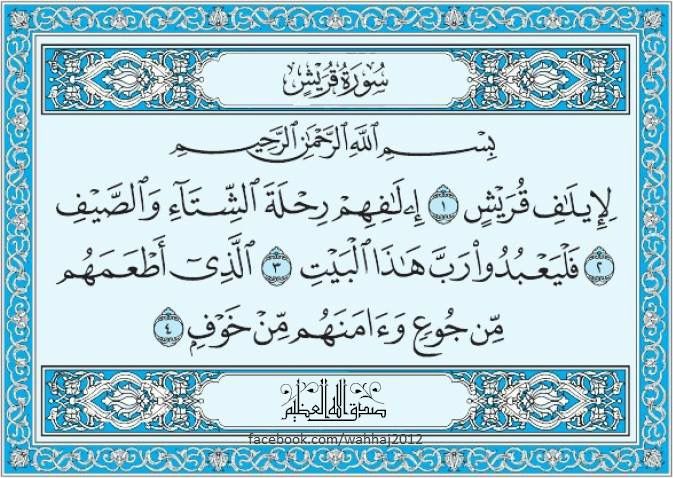 سُورَةُ قُرَيْشٍ
بِسْمِ ٱللَّهِ ٱلرَّحْمَٰنِ ٱلرَّحِيمِ
لِإِيلَٰفِ قُرَيْشٍ ١ إِۦلَٰفِهِمْ رِحْلَةَ ٱلشِّتَآءِ وَٱلصَّيْفِ
٢ فَلْيَعْبُدُوا۟ رَبَّ هَٰذَا ٱلْبَيْتِ ٣ ٱلَّذِىٓ أَطْعَمَهُم
مِّن جُوعٍ وَءَامَنَهُم مِّنْ خَوْفٍ ٤
صدق الله العظيم
facebook.com/wahhaj2012